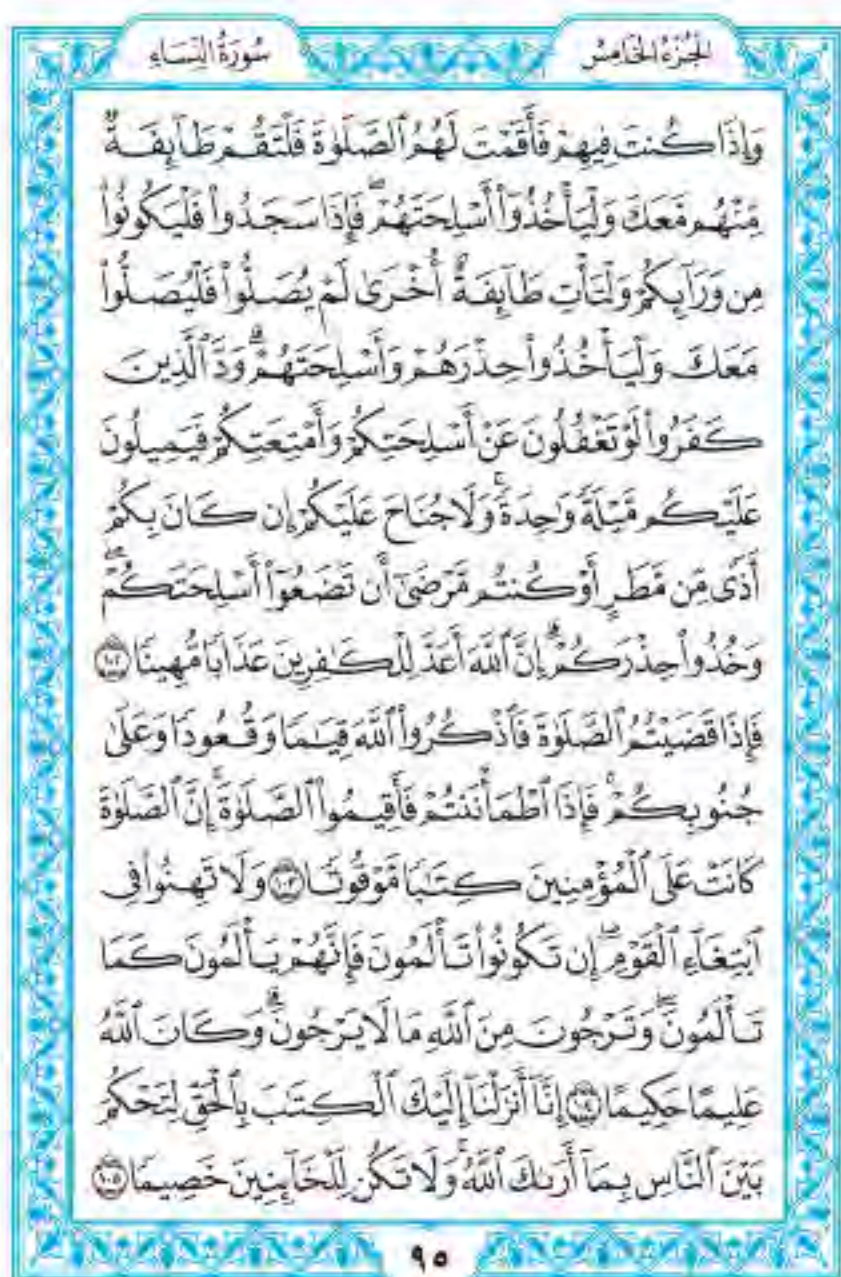 الجزء الخامس
سورة النساء
وَإِذَا كُنتَ فِيهِمْ فَأَقَمْتَ لَهُمُ ٱلصَّلَوٰةَ فَلْتَقُمْ طَآئِفَةٌ
مِّنْهُم مَّعَكَ وَلْيَأْخُذُوٓا۟ أَسْلِحَتَهُمْ ۖ فَإِذَا سَجَدُوا۟ فَلْيَكُونُوا۟
مِن وَرَآئِكُمْ وَلْتَأْتِ طَآئِفَةٌ أُخْرَىٰ لَمْ يُصَلُّوا۟ فَلْيُصَلُّوا۟
مَعَكَ وَلْيَأْخُذُوا۟ حِذْرَهُمْ وَأَسْلِحَتَهُمْ ۗ وَدَّ ٱلَّذِينَ
كَفَرُوا۟ لَوْ تَغْفُلُونَ عَنْ أَسْلِحَتِكُمْ وَأَمْتِعَتِكُمْ فَيَمِيلُونَ
عَلَيْكُم مَّيْلَةً وَٰحِدَةً ۚ وَلَا جُنَاحَ عَلَيْكُمْ إِن كَانَ بِكُمْ
أَذًى مِّن مَّطَرٍ أَوْ كُنتُم مَّرْضَىٰٓ أَن تَضَعُوٓا۟ أَسْلِحَتَكُمْ ۖ
وَخُذُوا۟ حِذْرَكُمْ ۗ إِنَّ ٱللَّهَ أَعَدَّ لِلْكَٰفِرِينَ عَذَابًا مُّهِينًا ١٠٢
فَإِذَا قَضَيْتُمُ ٱلصَّلَوٰةَ فَٱذْكُرُوا۟ ٱللَّهَ قِيَٰمًا وَقُعُودًا وَعَلَىٰ
جُنُوبِكُمْ ۚ فَإِذَا ٱطْمَأْنَنتُمْ فَأَقِيمُوا۟ ٱلصَّلَوٰةَ ۚ إِنَّ ٱلصَّلَوٰةَ
كَانَتْ عَلَى ٱلْمُؤْمِنِينَ كِتَٰبًا مَّوْقُوتًا ١٠٣ وَلَا تَهِنُوا۟ فِى
ٱبْتِغَآءِ ٱلْقَوْمِ ۖ إِن تَكُونُوا۟ تَأْلَمُونَ فَإِنَّهُمْ يَأْلَمُونَ كَمَا
تَأْلَمُونَ ۖ وَتَرْجُونَ مِنَ ٱللَّهِ مَا لَا يَرْجُونَ ۗ وَكَانَ ٱللَّهُ
عَلِيمًا حَكِيمًا ١٠٤ إِنَّآ أَنزَلْنَآ إِلَيْكَ ٱلْكِتَٰبَ بِٱلْحَقِّ لِتَحْكُمَ
بَيْنَ ٱلنَّاسِ بِمَآ أَرَىٰكَ ٱللَّهُ ۚ وَلَا تَكُن لِّلْخَآئِنِينَ خَصِيمًا ١٠٥
٩٥